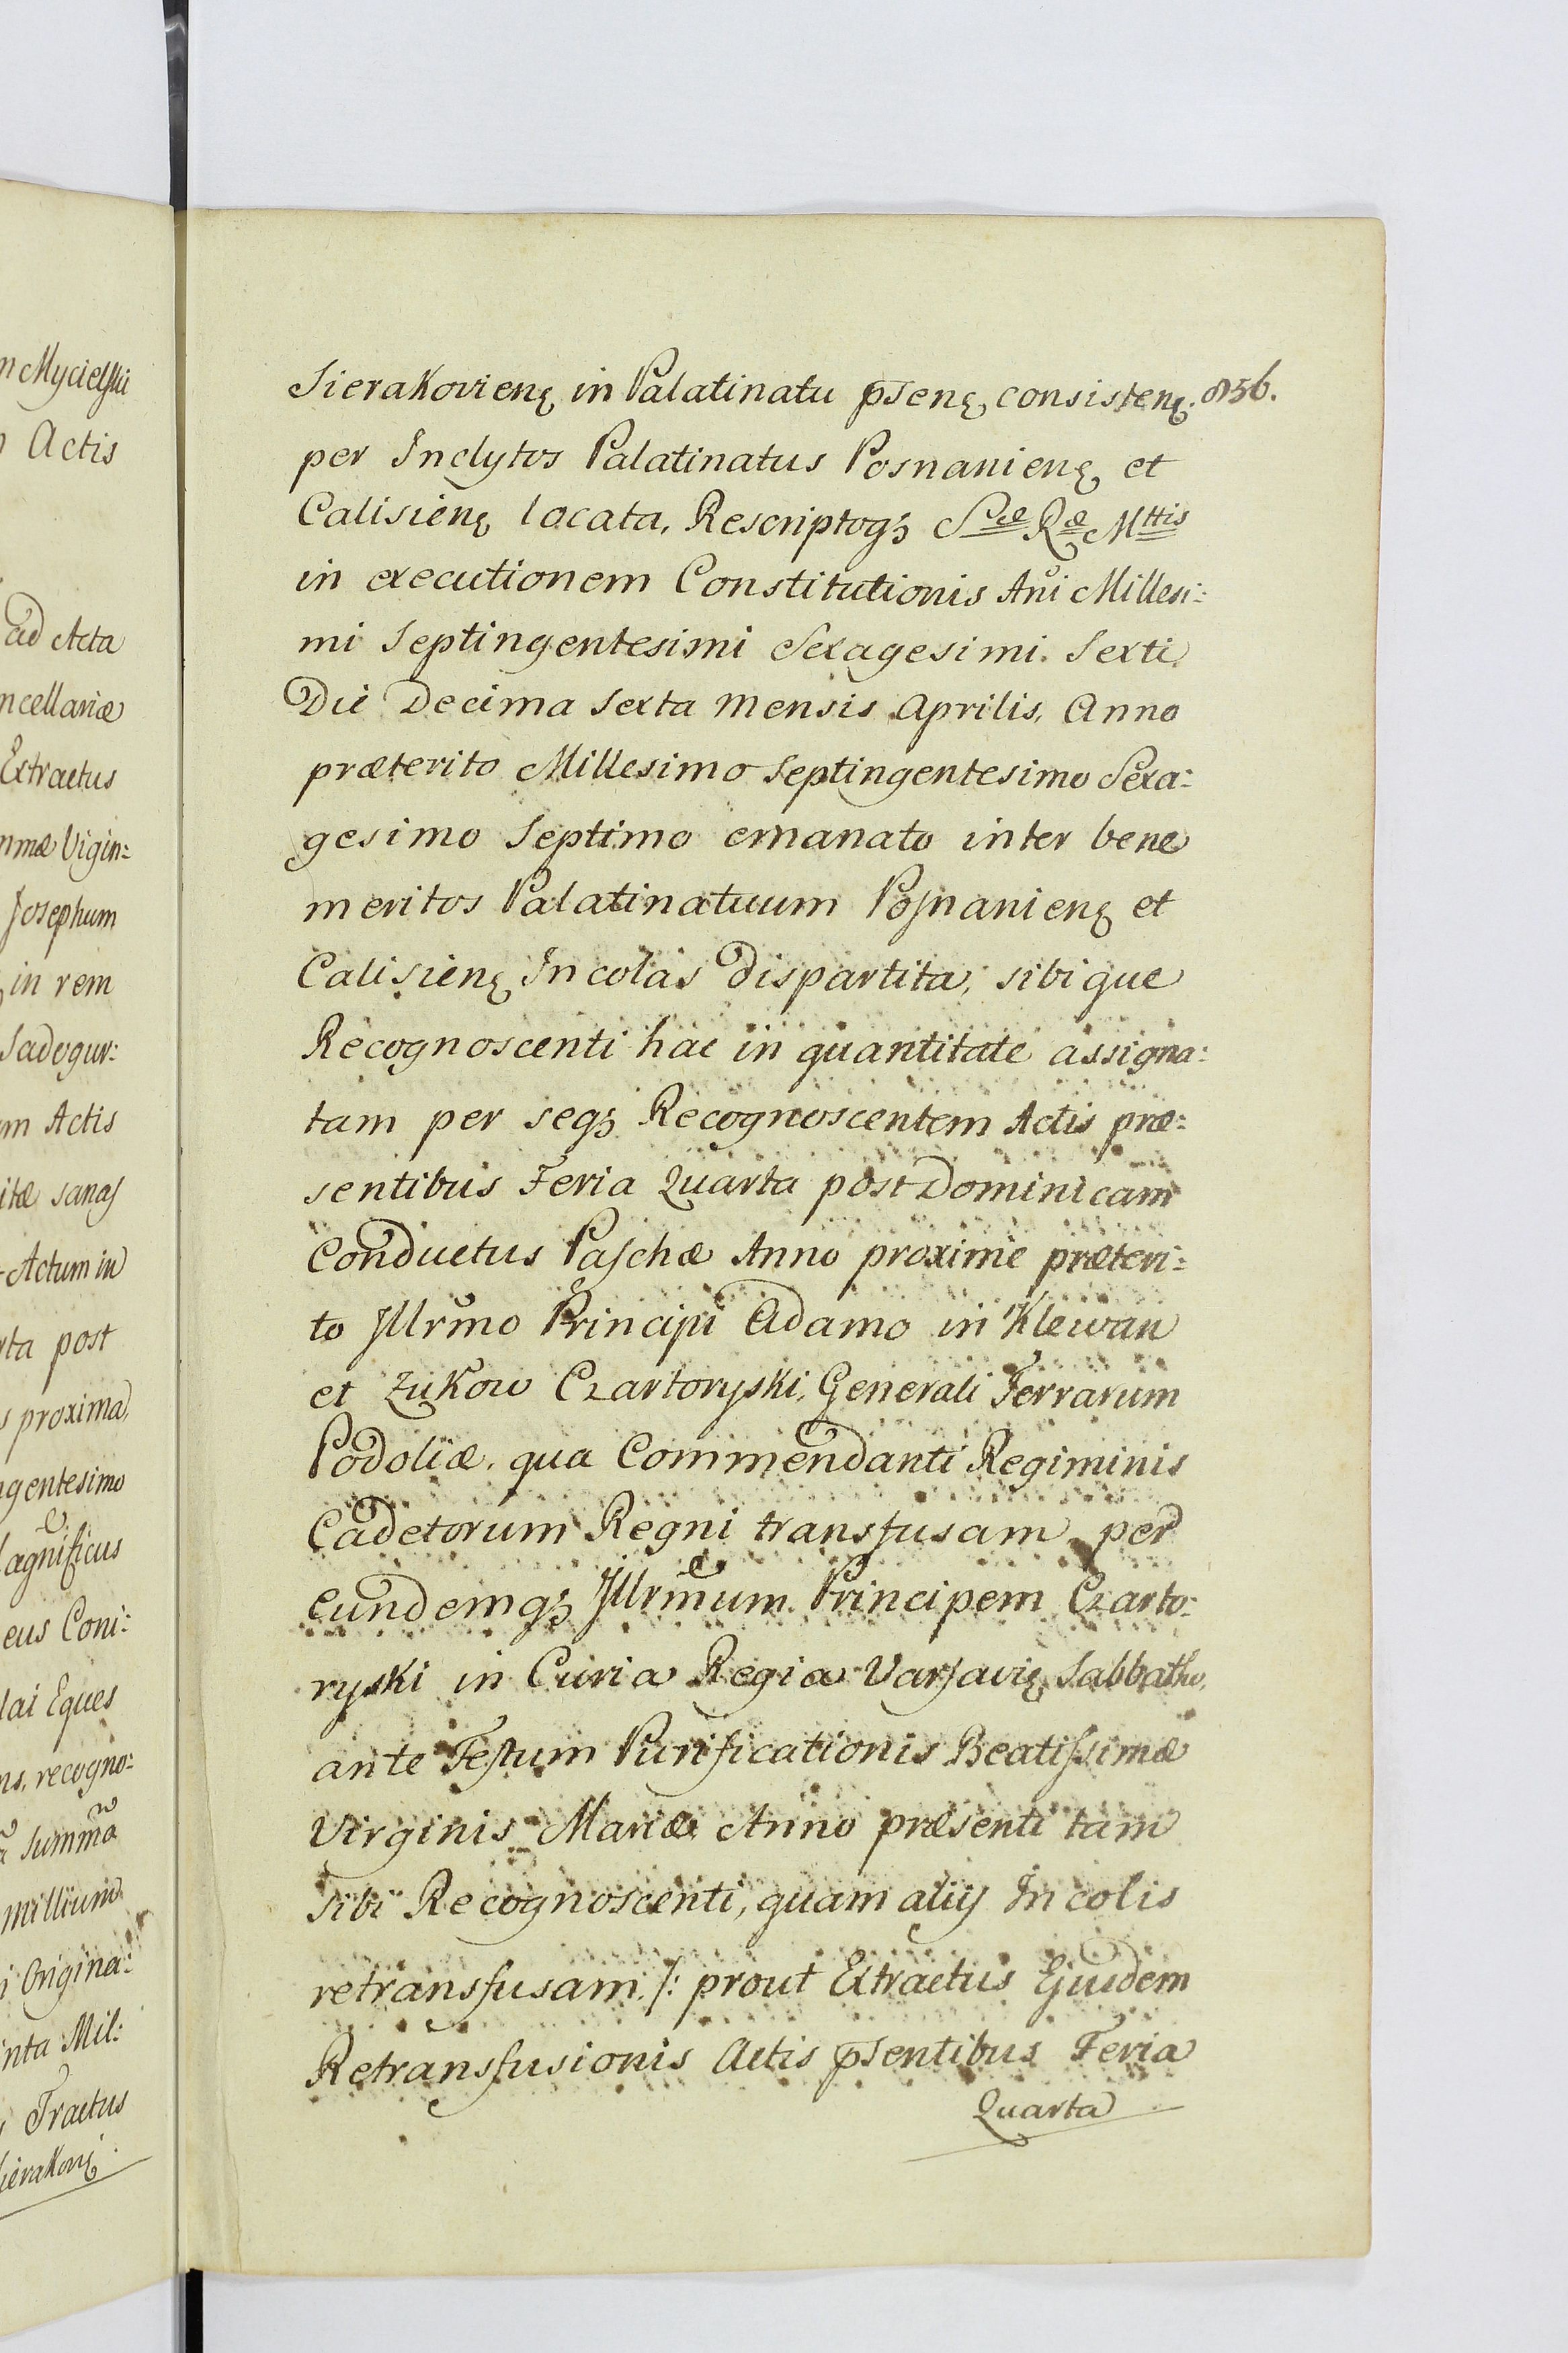 n Mycielski
Actis
ad Acta
ncellariæ
Extractus
mmæ Vigin:
Josephum
in rem
Sadogur:
m Actis
itæ sanaſ
Actum in
rta post
s proxima,
ngentesimo
agnificus
eus Coni:
lai Eques
ns, recogno:
Summa
millium
i Origina:
inta Mil:
Tractus
Sierakovię
856.
Sierakovienę in Palatinatu p̄senę consistenę.
per Inclytos Palatinatus Posnanienę et
Calisienę locata, Rescriptoqꝫ Sᵃᵉ Rᵃᵉ Mttis
in executionem Constitutionis Añi Millesi:
mi Septingentesimi Sexagesimi Sexti
Die Decima Sexta Mensis Aprilis, Anno
præterito Millesimo Septingentesimo Sexa:
gesimo Septimo emanato inter bene
meritos Palatinatuum Poſnanienę et
Calisienę Incolas dispartita, sibique
Recognoscenti hac in quantitate assigna:
tam per seqꝫ Recognoscentem Actis præ:
sentibus Feria Quarta post Dominicam
Conductus Paſchæ Anno proxime præteri:
to Jllrm̃o Principi Adamo in Klewan
et Zukow Czartoryski, Generali Terrarum
Podoliæ, qua Commendanti Regiminis
Cadetorum Regni transfusam, per
eundemqꝫ Jllrm̃um Principem Czarto:
ryski in Curia Regia Varſavię Sabbatho,
ante Feſtum Purificationis Beatiſsimæ
Virginis Mariæ Anno præsenti tam
sibi Recognoscenti, quam alijs Incolis
retransfusam /: prout Extractus Ejusdem
Retransfusionis Actis p̄sentibus Feria
Quarta